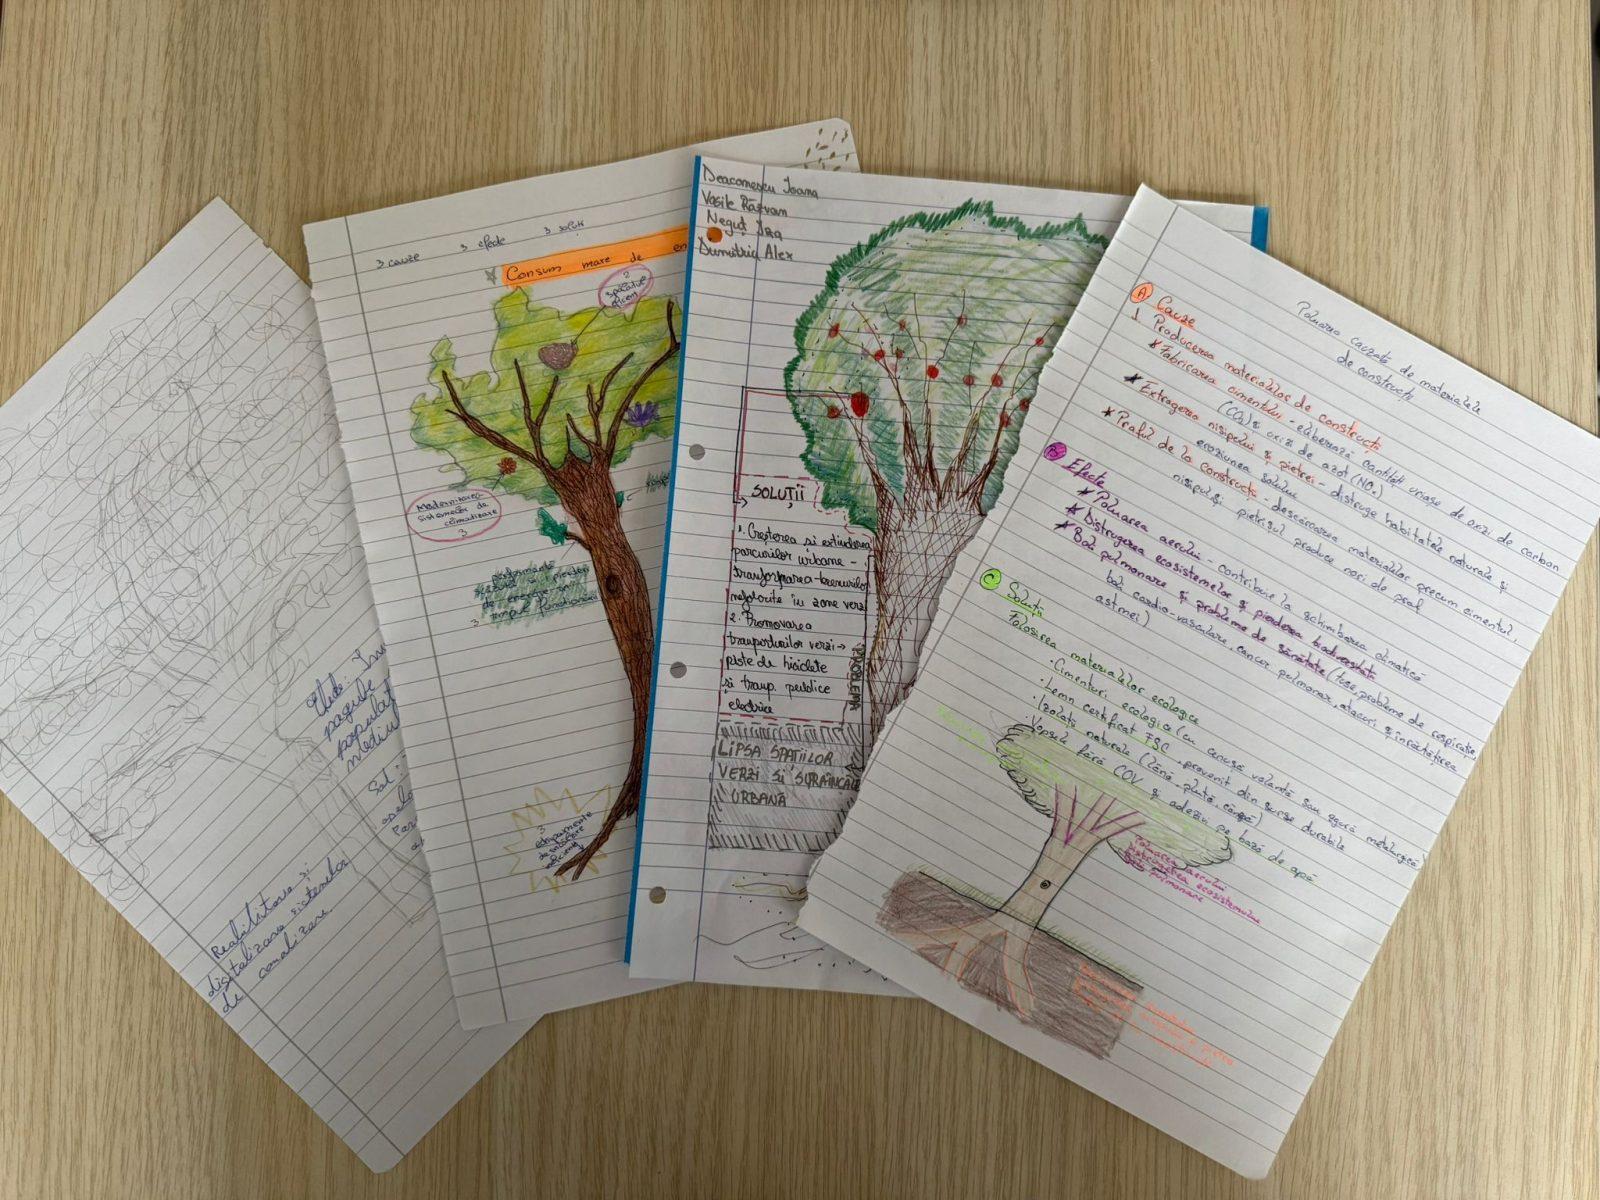 Reabilitarea și
digitalizarea sistemelor
de canalizare
3 cauze 3 efecte 3 soluții
Consum mare de en
2
spălatul
eficient
Modernizarea
sistemelor de
climatizare
3
performante
de energie în
timpul funcționării
3
3
echipamente
Deaconescu Ioana
Vasile Răzvan
Neguț Iza
Dumitriu Alex
SOLUȚII
1. Creșterea și extinderea
parcurilor urbane -
tranformarea terenurilor
nefolorite în zone verzi
2. Promovarea
tranporturilor verzi →
piste de biciclete
și tranp. publice
electrice
PROBLEMA
LIPSA SPAȚIILOR
VERZI ȘI SUPRAÎNCĂL
URBANĂ
Poluarea cauzată de materialele
de construcții
A Cauze
1. Producerea materialelor de construcții
* Fabricarea cimentului - eliberează cantități uriașe de oxizi de carbon
(CO₂) și oxizi de azot (NOₓ)
* Extragerea nisipului și pietrei - distruge habitatele naturale și
eroziunea solului
* Praful de la construcții - descărcarea materialelor precum cimentul,
nisipul și pietrișul produce nori de praf
B Efecte
* Poluarea aerului - contribuie la schimbarea climatică
* Distrugerea ecosistemelor și pierderea biodiversității
* Boli pulmonare și probleme de sănătate (tuse, probleme de respirație,
boli cardio-vasculare, cancer pulmonar, atacuri și înrăutățirea
astmei)
C Soluții
Folosirea materialelor ecologice
· Cimenturi ecologice (cu cenușă volantă sau zgură metalurgică
· Lemn certificat FSC, provenit din surse durabile
· Izolații naturale (lână, plută, cânepă)
· Vopsele fără COV și adezivi pe bază de apă
Poluarea aerului
Distrugerea ecosistemelor
Boli pulmonare